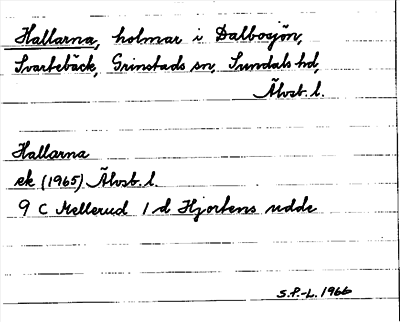 Hallarna, holmar i Dalbosjön,
Svartebäck, Grinstads sn, Sundals hd,
Älvsb. l.
Hallarna
ek (1965) Älvsb. l.
9 C Mellerud 1 d Hjortens udde
S.P.-L. 1966